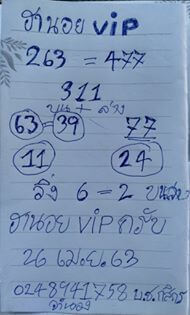 ฮานอย VIP
263 = 477
311
บน + ล่าง
63 = 39 77
11 24
วิ่ง 6 = 2 บน
ฮานอย VIP ครับ
26 เม.ย. 63
0248941758 บ.ช. กสิกร